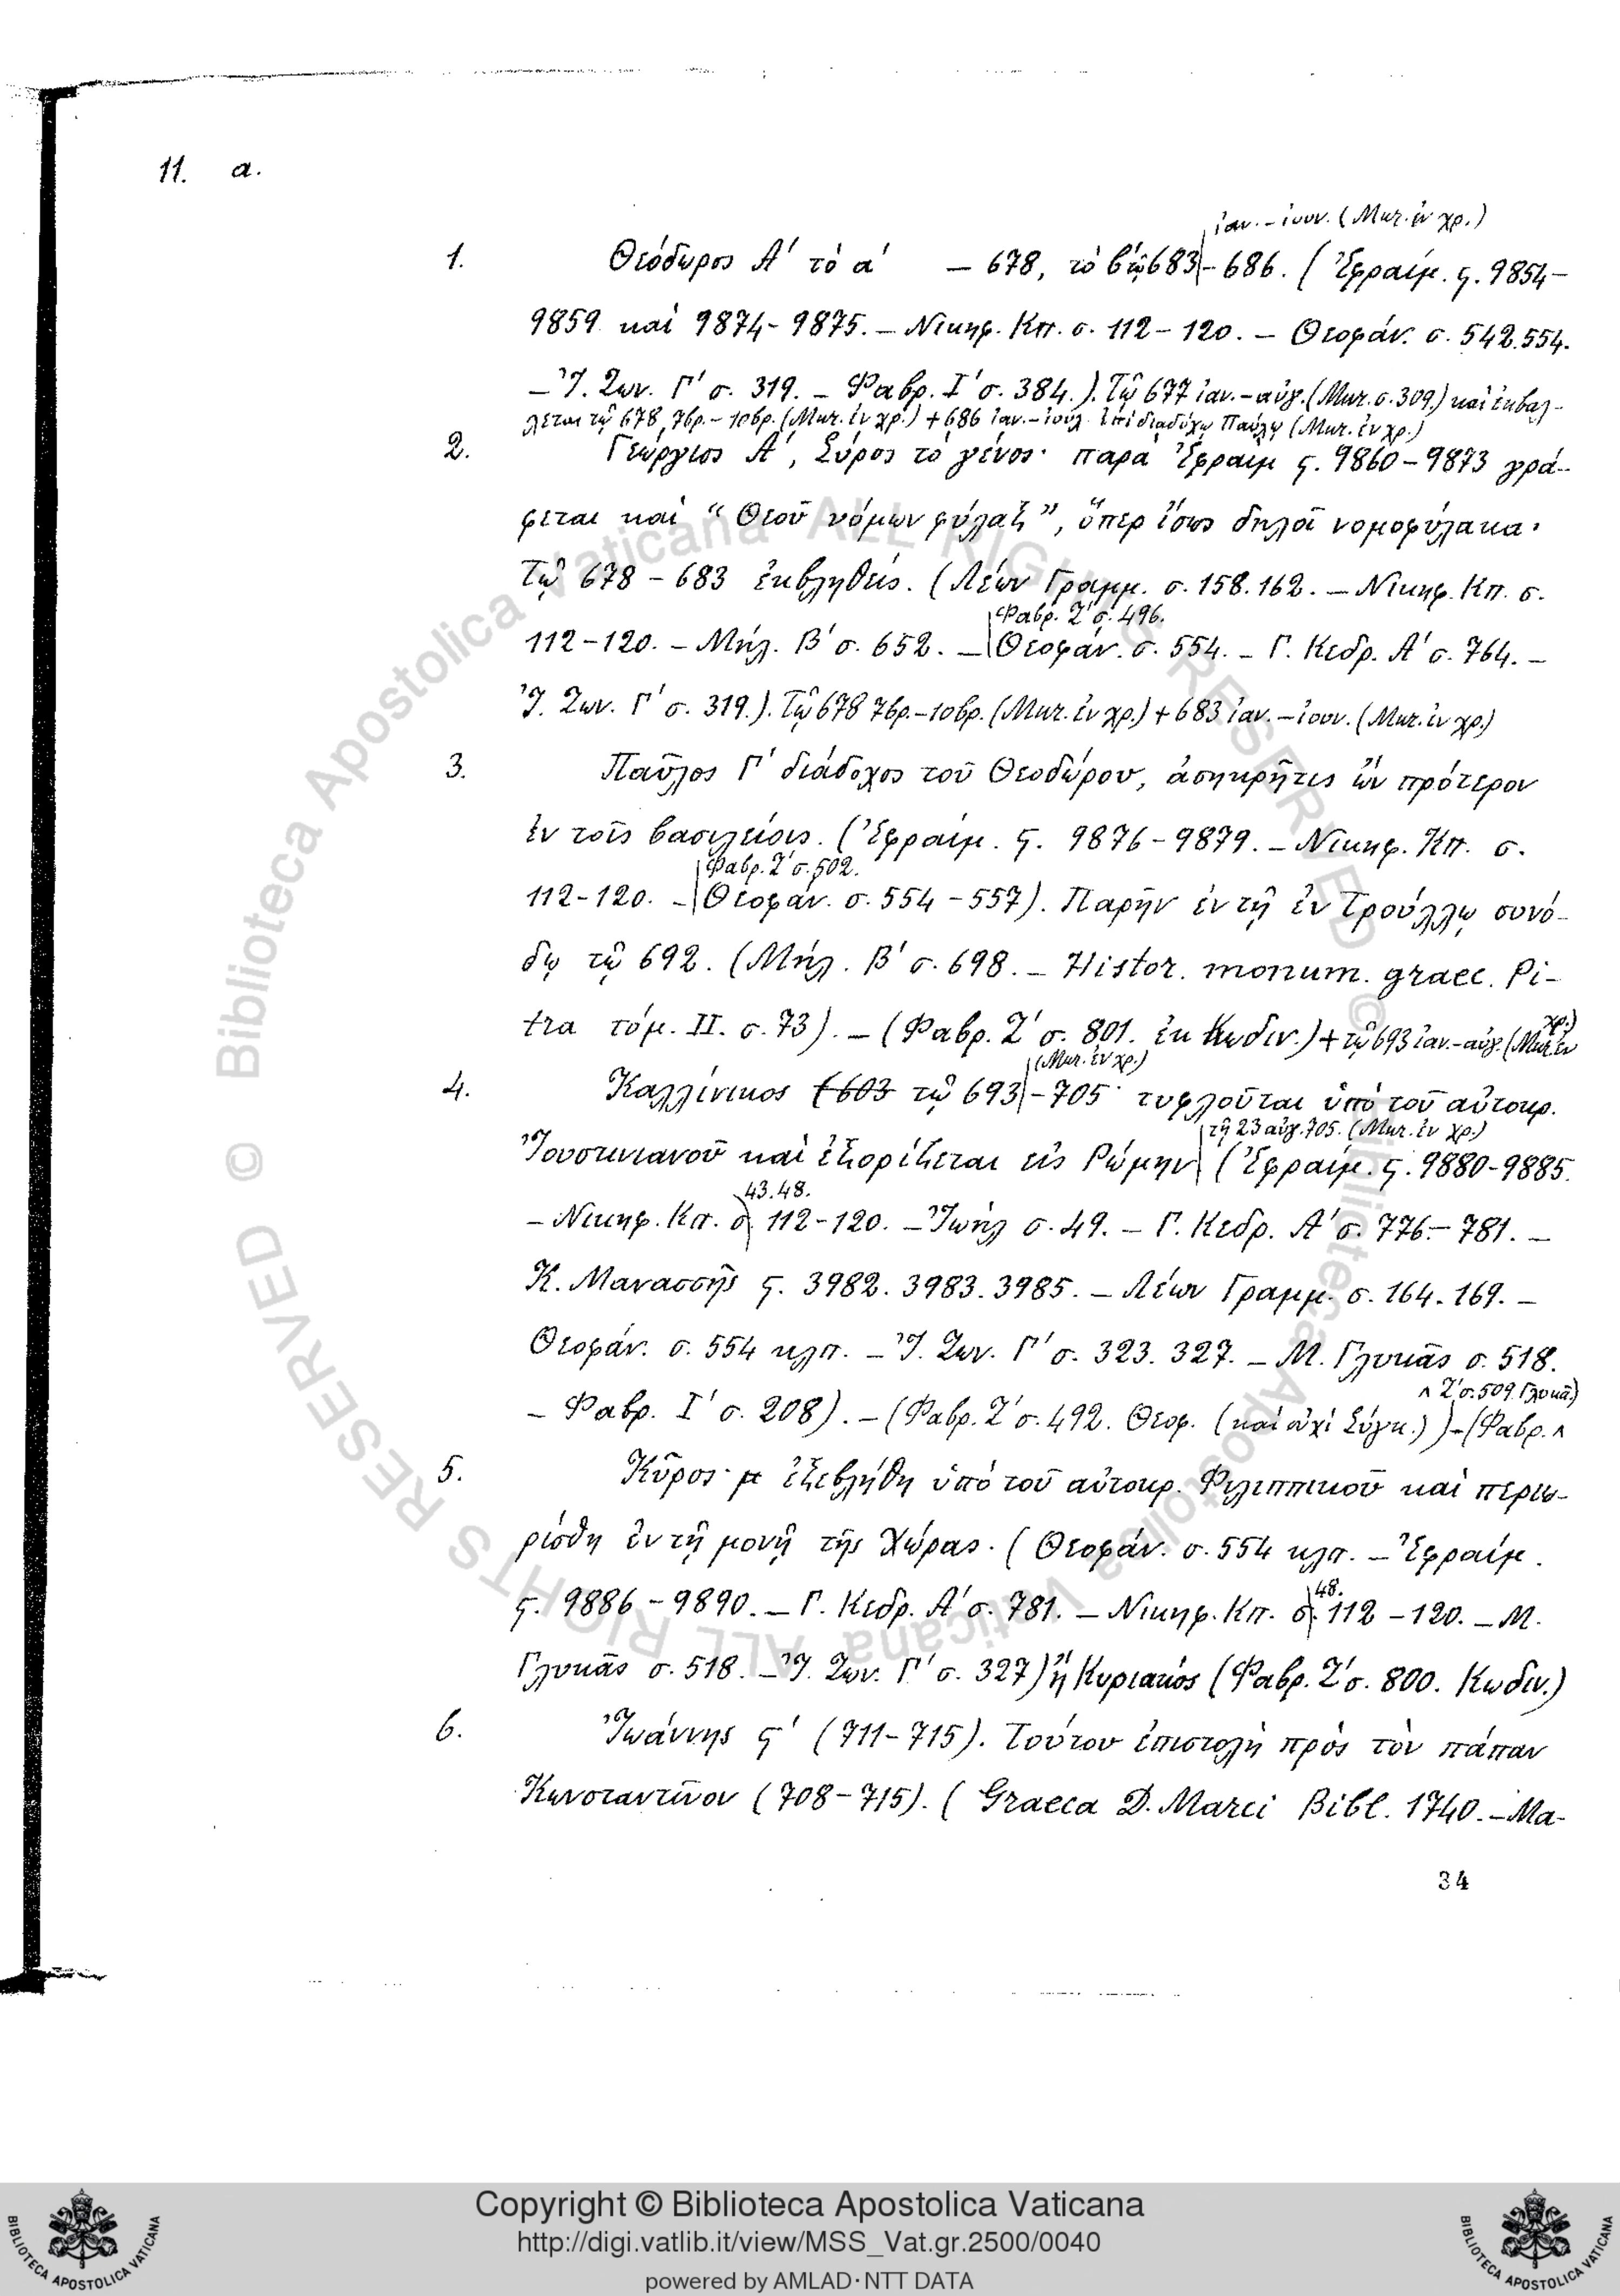 11. α.
ἰαν.-ἰουν. (Ματ. ἐν χρ.)
1. Θεόδωρος Α' τὸ α' — 678, τὸ β' τῷ 683 - 686. (Ἐφραίμ. ς. 9854-
9859 καὶ 9874-9875. — Νικηφ. Κπ. σ. 112-120. — Θεοφάν. σ. 542.554.
— Ἰ. Ζων. Γ' σ. 319. — Φαβρ. Ι' σ. 384.). Τῷ 677 ἰαν.-αὐγ. (Ματ. σ. 309.) καὶ ἐκβάλ-
λεται τῷ 678, 7βρ.-10βρ. (Ματ. ἐν χρ.) + 686 ἰαν.-ἰουλ. ἐπὶ διαδόχῳ Παύλῳ (Ματ. ἐν χρ.)
2. Γεώργιος Α', Σύρος τὸ γένος· παρὰ Ἐφραὶμ ς. 9860-9873 γρά-
φεται καὶ “Θεοῦ νόμων φύλαξ”, ὅπερ ἴσως δηλοῖ νομοφύλακα·
Τῷ 678 - 683 ἐκβληθείς. (Λέων Γραμμ. σ. 158.162. — Νικηφ. Κπ. σ.
Φαβρ. Ζ' σ. 496.
112-120. — Μήλ. Β' σ. 652. — Θεοφάν. σ. 554. — Γ. Κεδρ. Α' σ. 764. —
Ἰ. Ζων. Γ' σ. 319.). Τῷ 678 7βρ.-10βρ. (Ματ. ἐν χρ.) + 683 ἰαν.-ἰουν. (Ματ. ἐν χρ.)
3. Παῦλος Γ' διάδοχος τοῦ Θεοδώρου, ἀσηκρῆτις ὢν πρότερον
ἐν τοῖς βασιλείοις. (Ἐφραίμ. ς. 9876-9879. — Νικηφ. Κπ. σ.
Φαβρ. Ζ' σ. 502.
112-120. — Θεοφάν. σ. 554-557). Παρῆν ἐν τῇ ἐν Τρούλλῳ συνό-
δῳ τῷ 692. (Μήλ. Β' σ. 698. — Histor. monum. graec. Pi-
tra τόμ. II. σ. 73). — (Φαβρ. Ζ' σ. 801. ἐκ Κωδιν.) + τῷ 693 ἰαν.-αὐγ. (Ματ. ἐν χρ.)
(Ματ. ἐν χρ.)
4. Καλλίνικος (603 τῷ 693 - 705· τυφλοῦται ὑπὸ τοῦ αὐτοκρ.
τῇ 23 αὐγ. 705. (Ματ. ἐν χρ.)
Ἰουστινιανοῦ καὶ ἐξορίζεται εἰς Ρώμην (Ἐφραίμ. ς. 9880-9885.
43.48.
— Νικηφ. Κπ. σ. 112-120. — Ἰωήλ σ. 49. — Γ. Κεδρ. Α' σ. 776.-781. —
Κ. Μανασσῆς ς. 3982. 3983. 3985. — Λέων Γραμμ. σ. 164.169. —
Θεοφάν. σ. 554 κλπ. — Ἰ. Ζων. Γ' σ. 323. 327. — Μ. Γλυκᾶς σ. 518.
Ζ' σ. 509. Γλυκᾶ.)
— Φαβρ. Ι' σ. 208). — (Φαβρ. Ζ' σ. 492. Θεοφ. (καὶ οὐχὶ Σύγκ.)) — (Φαβρ.
5. Κῦρος· ἐξεβλήθη ὑπὸ τοῦ αὐτοκρ. Φιλιππικοῦ καὶ περιω-
ρίσθη ἐν τῇ μονῇ τῆς Χώρας. (Θεοφάν. σ. 554 κλπ. — Ἐφραίμ.
48.
ς. 9886-9890. — Γ. Κεδρ. Α' σ. 781. — Νικηφ. Κπ. σ. 112-120. — Μ.
Γλυκᾶς σ. 518. — Ἰ. Ζων. Γ' σ. 327) ἢ Κυριακός (Φαβρ. Ζ' σ. 800. Κωδιν.)
6. Ἰωάννης ς' (711-715). Τούτου ἐπιστολὴ πρὸς τὸν πάπαν
Κωνσταντῖνον (708-715). (Graeca D. Marci Bibl. 1740. — Μα-
34
© Biblioteca Apostolica Vaticana ALL RIGHTS RESERVED
© Biblioteca Apostolica Vaticana ALL RIGHTS RESERVED
Copyright © Biblioteca Apostolica Vaticana
http://digi.vatlib.it/view/MSS_Vat.gr.2500/0040
powered by AMLAD·NTT DATA
BIBLIOTECA APOSTOLICA VATICANA
BIBLIOTECA APOSTOLICA VATICANA